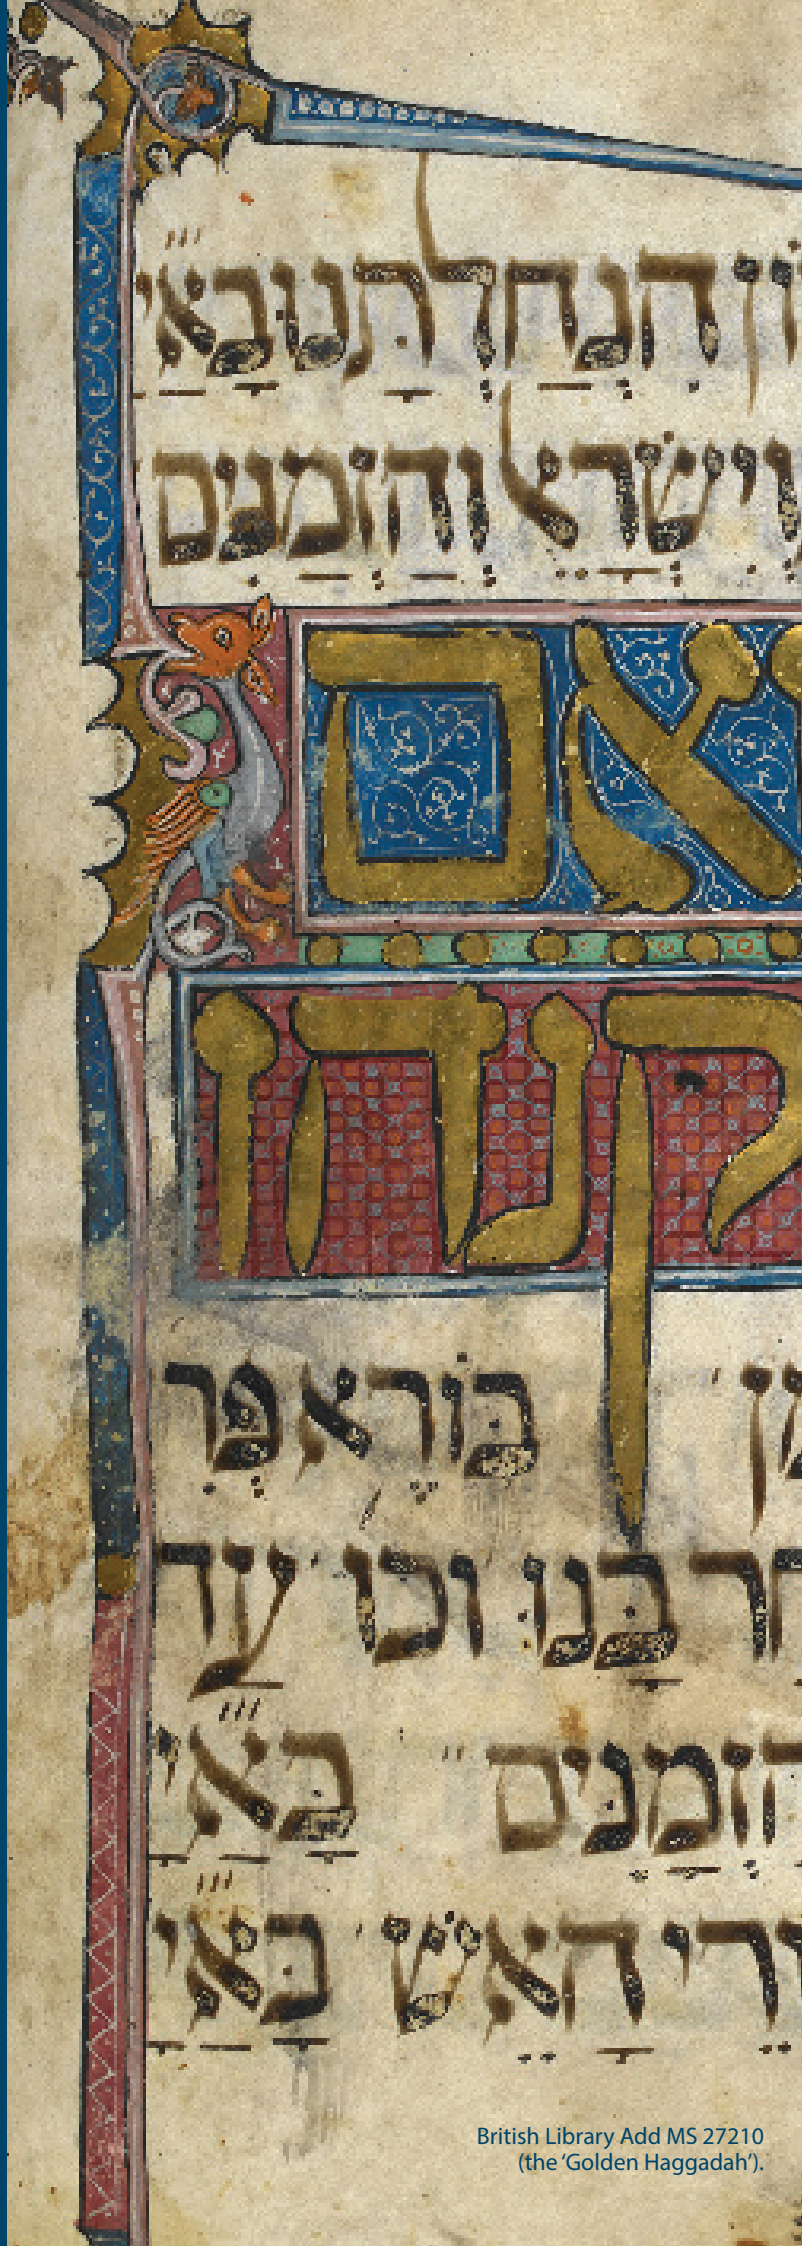 הנחלתנו באי
ישראל והזמנים
אם
קנהז
בורא פר
בנו וכו' עד
הזמנים " באי
האש ' באי
British Library Add MS 27210
(the ‘Golden Haggadah’).